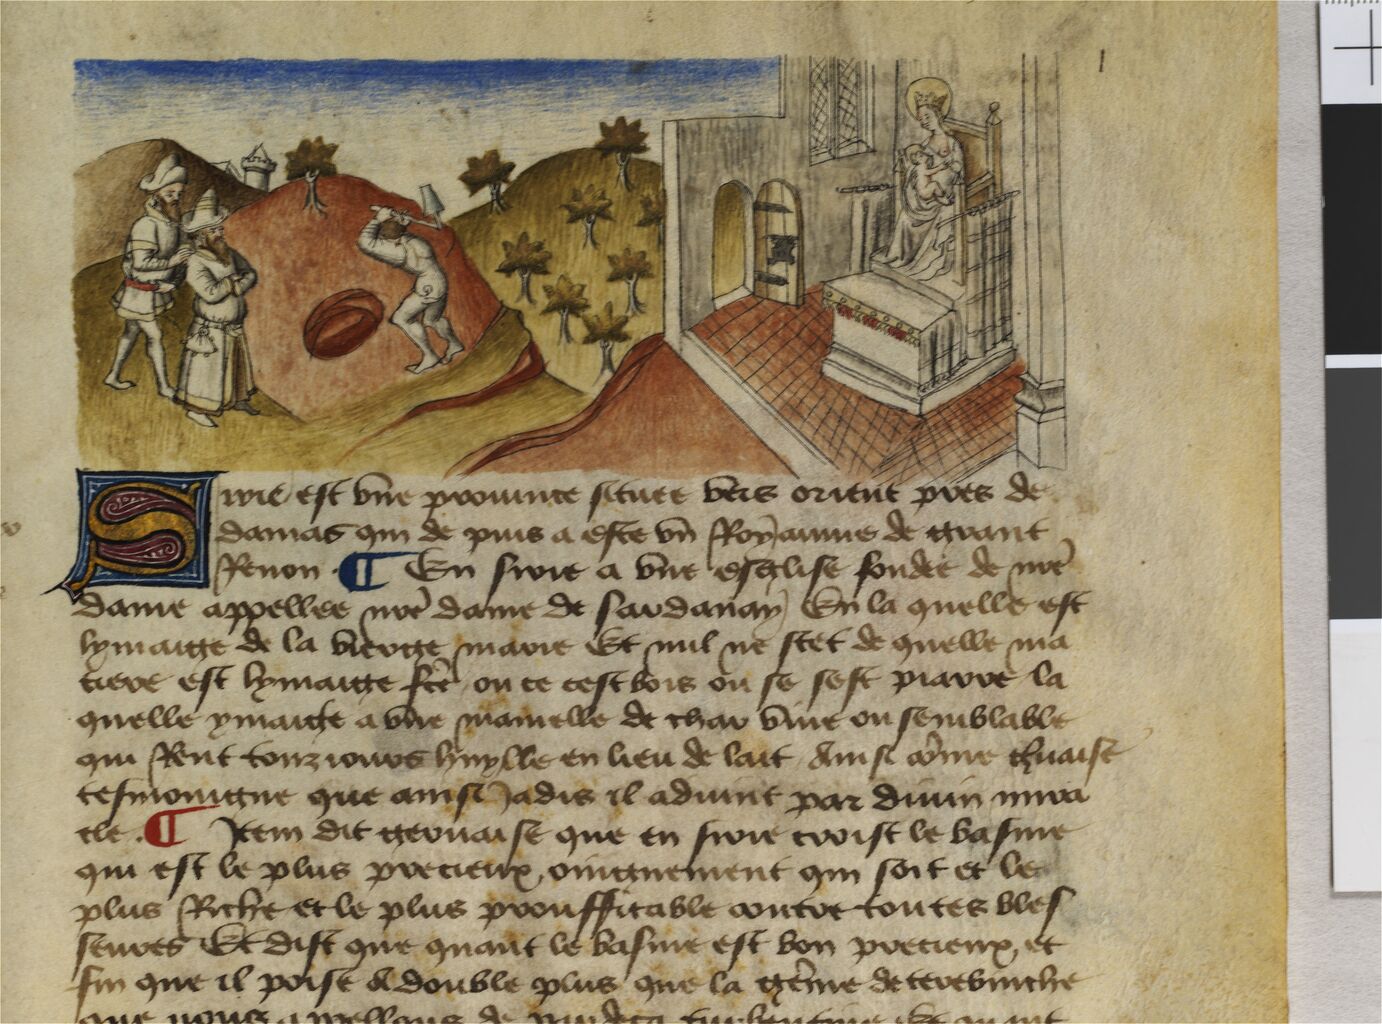 Sirie est vne prouince situee vers orient pres de
damas qui de puis a este vn Royaume de grant
Renon. ¶ En sirie a vne esglise fondee de nr̄e
dame appellee nr̄e dame de sardanay En la quelle est
lymaige de la vierge marie Et nul ne scet de quelle ma
tiere est lymaige fc̄e ou ce cest bois ou se sest piarre la
quelle ymaige a vne mamelle de char viue ou semblable
qui Rent touziours huylle en lieu de lait Ainsi cōme
tesmoingne que ainsi Jadis il aduint par diuin mira
cle. ¶ Item dit geruaise que en sirie croist le basme
qui est le plus precieux oingnement qui soit et le
plus Riche et le plus prouffitable contre toutes bles
seures Et dist que quant le basme est bon precieux et
fin que il poise double plus que la gōme de terebinthe
que nous appellons de par deca turbentine Et quant